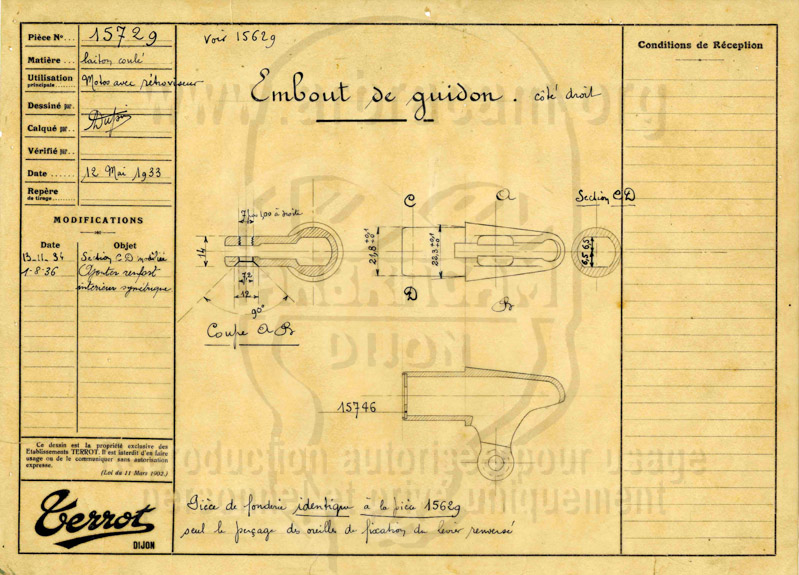 Pièce N° 15729
Matière laiton coulé
Utilisation principale Motos avec rétroviseur
Dessiné par
Calqué par Dupin
Vérifié par
Date 12 Mai 1933
Repère du tirage
MODIFICATIONS
Date Objet
13-11-34 Section CD modifiée
1-8-36 Ajouter renfort
intérieur symétrique
Ce dessin est la propriété exclusive des
Etablissements TERROT. Il est interdit d'en faire
usage ou de le communiquer sans autorisation
expresse.
(Loi du 11 Mars 1902.)
Terrot
DIJON
Voir 15629
Embout de guidon. côté droit
7 pas 1,00 à droite
14
7,2
12
90°
Coupe A B
C
A
21,8 +0,1 -0
20,3 +0,1 -0
D
B
Section C D
6,5 6,5
15746
Pièce de fonderie identique à la pièce 15629
seul le perçage des oreilles de fixation du levier renversé
Conditions de Réception
DIJON
reproduction autorisée pour usage
personnel et privé uniquement